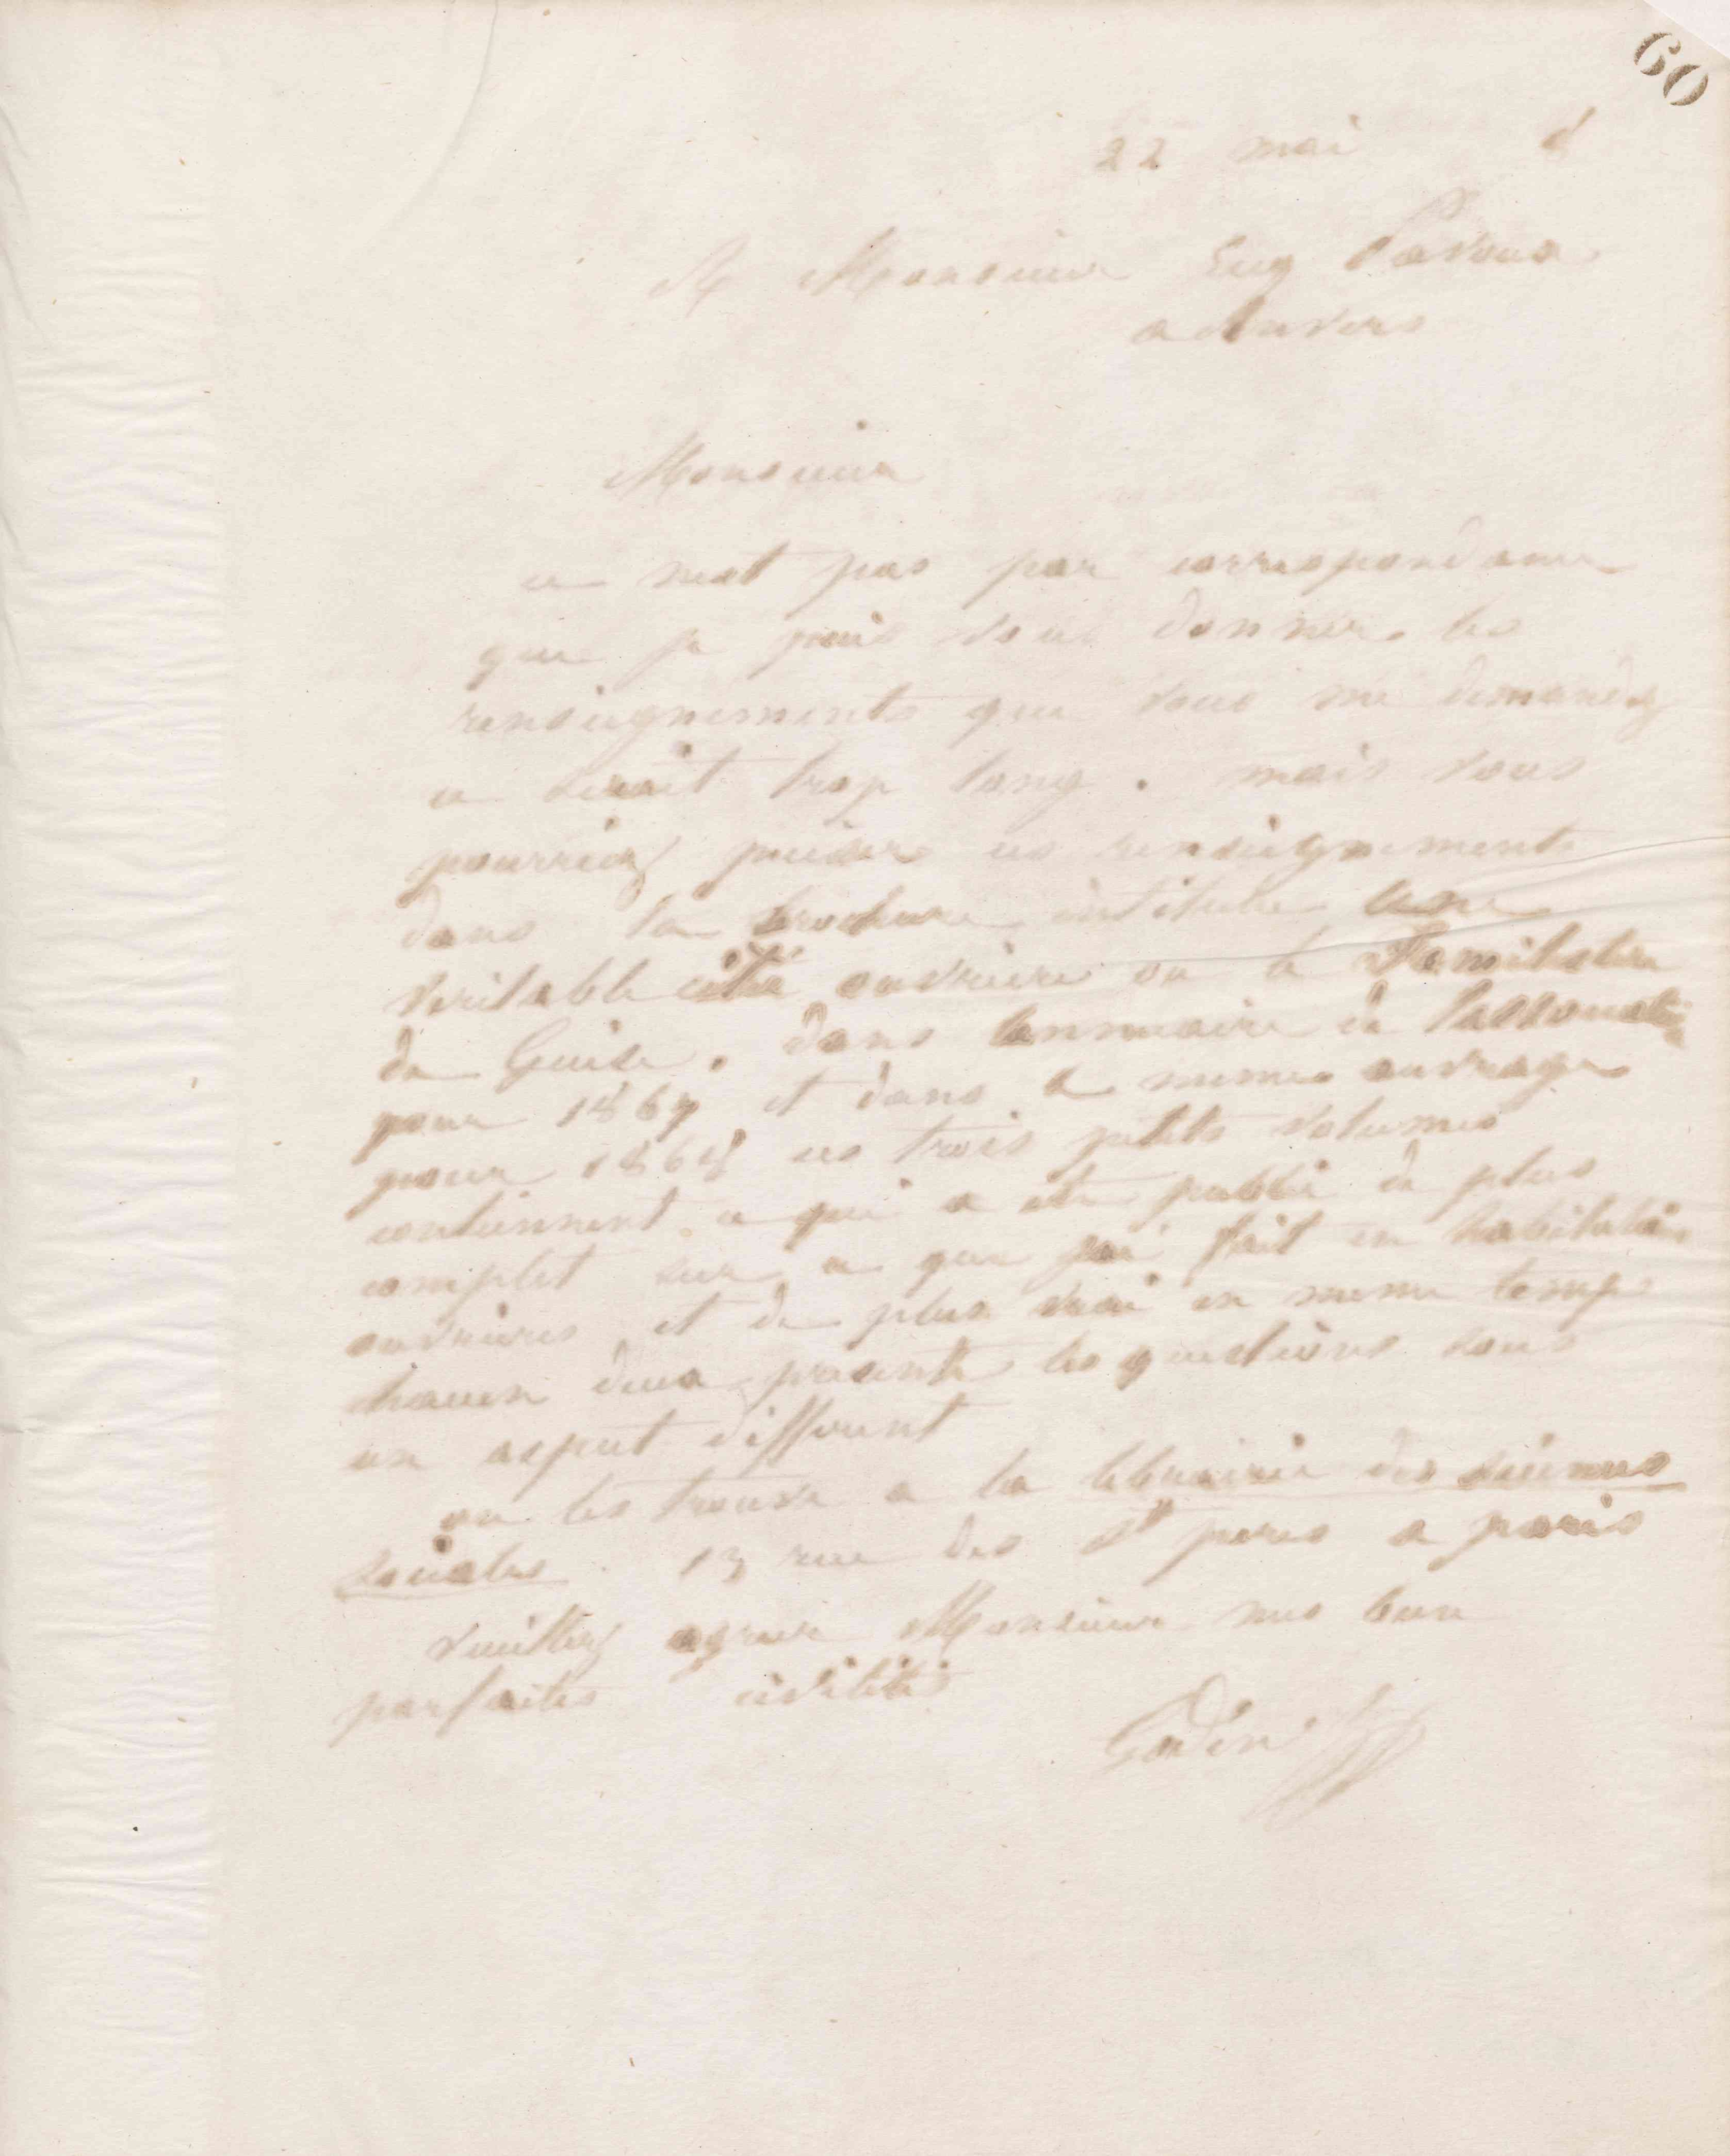 60
22 mai
A Monsieur Eug
a Anvers
Monsieur
ce nest pas par correspondance
que je puis vous donner les
renseignements que vous me demandez
ce serait trop long. mais vous
pourriez puiser ces renseignements
dans la brochure intitulee une
veritable cité ouvriere ou le Familistere
de Guise. dans lannuaire de lassociation
pour 1867 et dans le meme ouvrage
pour 1868 ces trois petits volumes
contiennent ce qui a ete publié de plus
complet sur ce que jai fait en habitations
ouvrieres et de plus vrai en meme temps
chacun deux presente les questions sous
un aspect different
on les trouve a la librairie des sciences
sociales. 13 rue des St peres a paris
veuillez agreer Monsieur mes
parfaites civilités
Godin